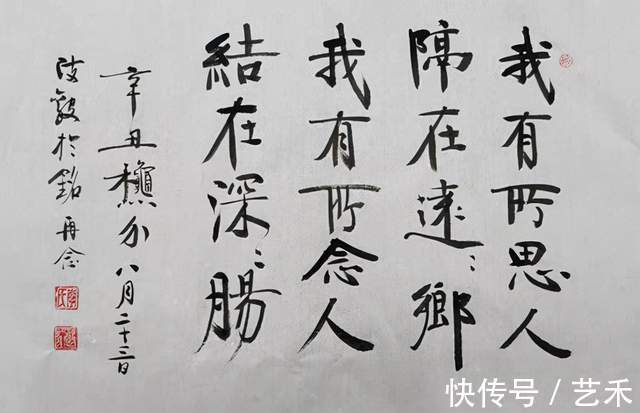 我有所思人
隔在遠〻鄉
我有所念人
結在深〻腸
辛丑龝分八月二十三日
於銘再念
快传号 / 艺禾